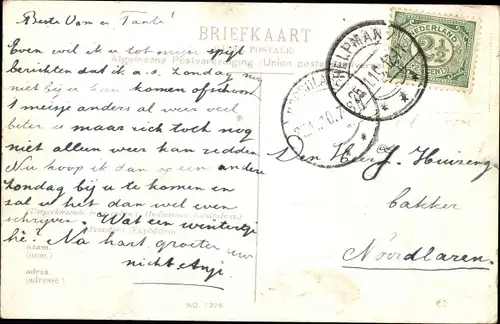 Beste Oom en Tante!
Even wil ik u tot mijn spijt
berichten dat ik a.s. Zondag nog
niet bij u kan komen ofschoon
't meisje anders al weer veel
beter is maar zich toch nog
niet alleen weer kan redden
Nu hoop ik dan op een andere
Zondag bij u te komen en
zal u het dan wel even
schrijven. Wat een wintertje
hè! Na hart. groeten uw
nicht Anje.
BRIEFKAART
POSTALE)
Algemeene Postvereeniging (Union postale
naam:
(nom.)
adres:
(adresse)
NO. 1376
NEDERLAND
2½
CENT
Den Heer J. Huizenga
bakker
Noordlaren.